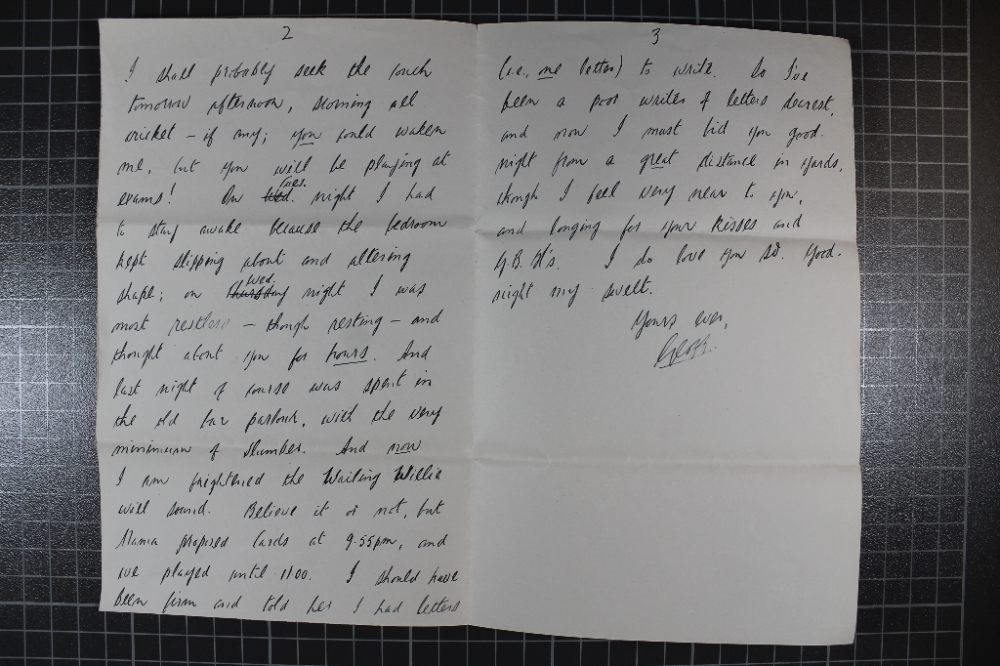 2
I shall probably seek the couch
tomorrow afternoon, scorning all
cricket – if any; you could waken
me, but you will be playing at
exams! On Wed. Tues. night I had
to stay awake because the bedroom
kept slipping about and altering
shape; on Thursday Wed. night I was
most restless – though resting – and
thought about you for hours. And
last night of course was spent in
the old bar parlour, with the very
minimum of slumber. And now
I am frightened the Wailing Willie
will sound. Believe it or not, but
Mama proposed Cards at 9.55pm, and
we played until 11.00. I should have
been firm and told her I had letters
3
(i.e., one letter) to write. So I've
been a poor writer of letters dearest,
and now I must bid you good-
night from a great distance in yards,
though I feel very near to you,
and longing for your kisses and
G.B.H's. I do love you so. Good-
night my swelt.
Yours ever,
Geoff.